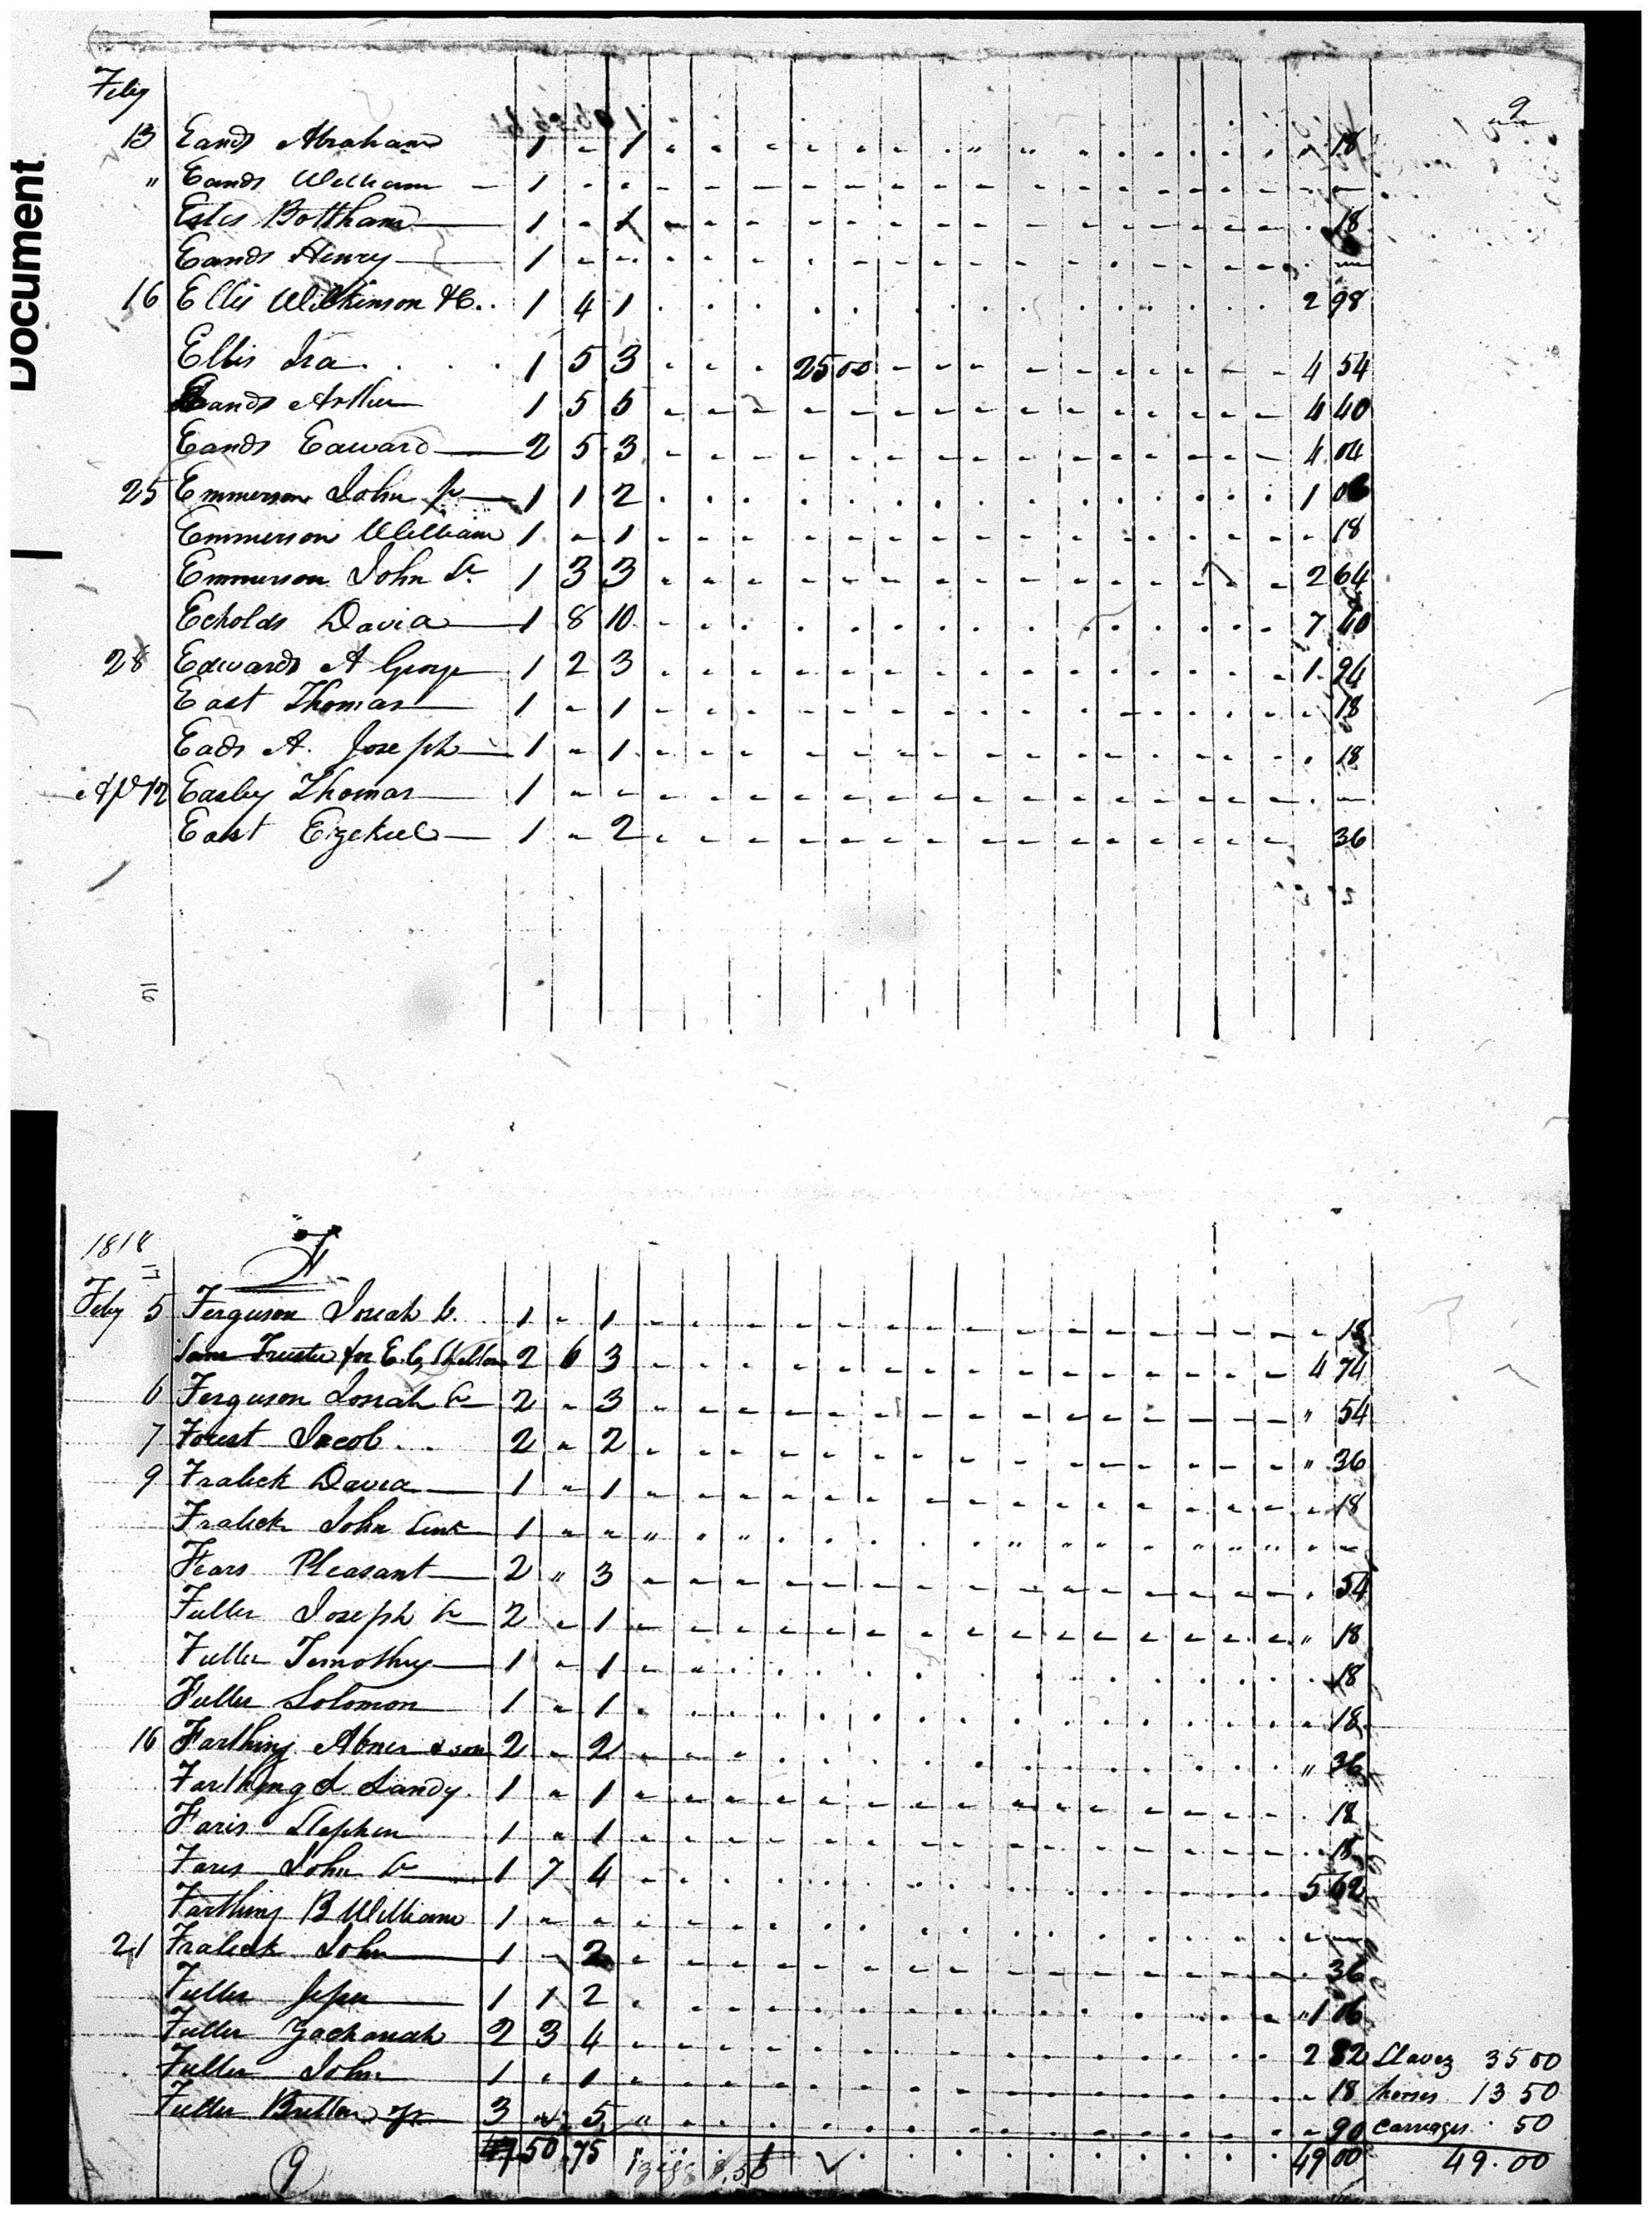 Document
Feby
9
13 Eands Abraham 1 - 1 18
" Eands William - 1
Estes Bottham 1 - 1 18
Eands Henry 1
16 Ellis Wilkinson &C.. 1 4 1 2 98
Ellis Ira 1 5 3 25 00 4 54
Eands Arther 1 5 5 4 40
Eands Edward 2 5 3 4 04
25 Emmerson John Jr 1 1 2 1 06
Emmerson William 1 - 1 18
Emmerson John Sr 1 3 3 2 64
Echolds David 1 8 10 7 40
28 Edwards A George 1 2 3 1 94
East Thomas 1 - 1 18
Eads A. Joseph 1 - 1 18
Apl 12 Easley Thomas 1
East Ezekiel 1 - 2 36
1818 F
Feby 5 Ferguson Josiah Jr. 1 - 1 18
Same Trustee for E. C. Shelton 2 6 3 4 74
6 Ferguson Josiah Sr 2 - 3 " 54
7 Forest Jacob 2 - 2 " 36
9 Fralick David 1 - 1 18
Fralick John Senr 1
Fears Pleasant 2 " 3 54
Fuller Joseph Sr 2 - 1 " 18
Fuller Timothy 1 - 1 18
Fuller Solomon 1 - 1 18
16 Farthing Abner & son 2 - 2 " 36
Farthing L Landy 1 - 1 18
Faris Stephen 1 - 1 18
Faris John Sr 1 7 4 5 62
Farthing B William 1
21 Fralick John 1 - 2 36
Fuller Jesse 1 1 2 " 1 06
Fuller Zachariah 2 3 4 2 82 Slaves 35 00
Fuller John 1 - 1 18 horses 13 50
Fuller Britton 3 5 " 90 Carriages 50
47 50 75 1 gigg $.50 49 00 49.00
9